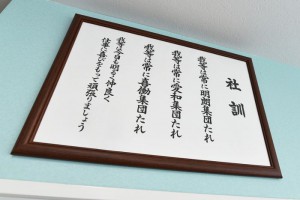 社訓
我等は常に明朗集団たれ
我等は常に愛和集団たれ
我等は常に喜働集団たれ
我等は今日も明るく仲良く
仕事に喜びをもって頑張りましょう